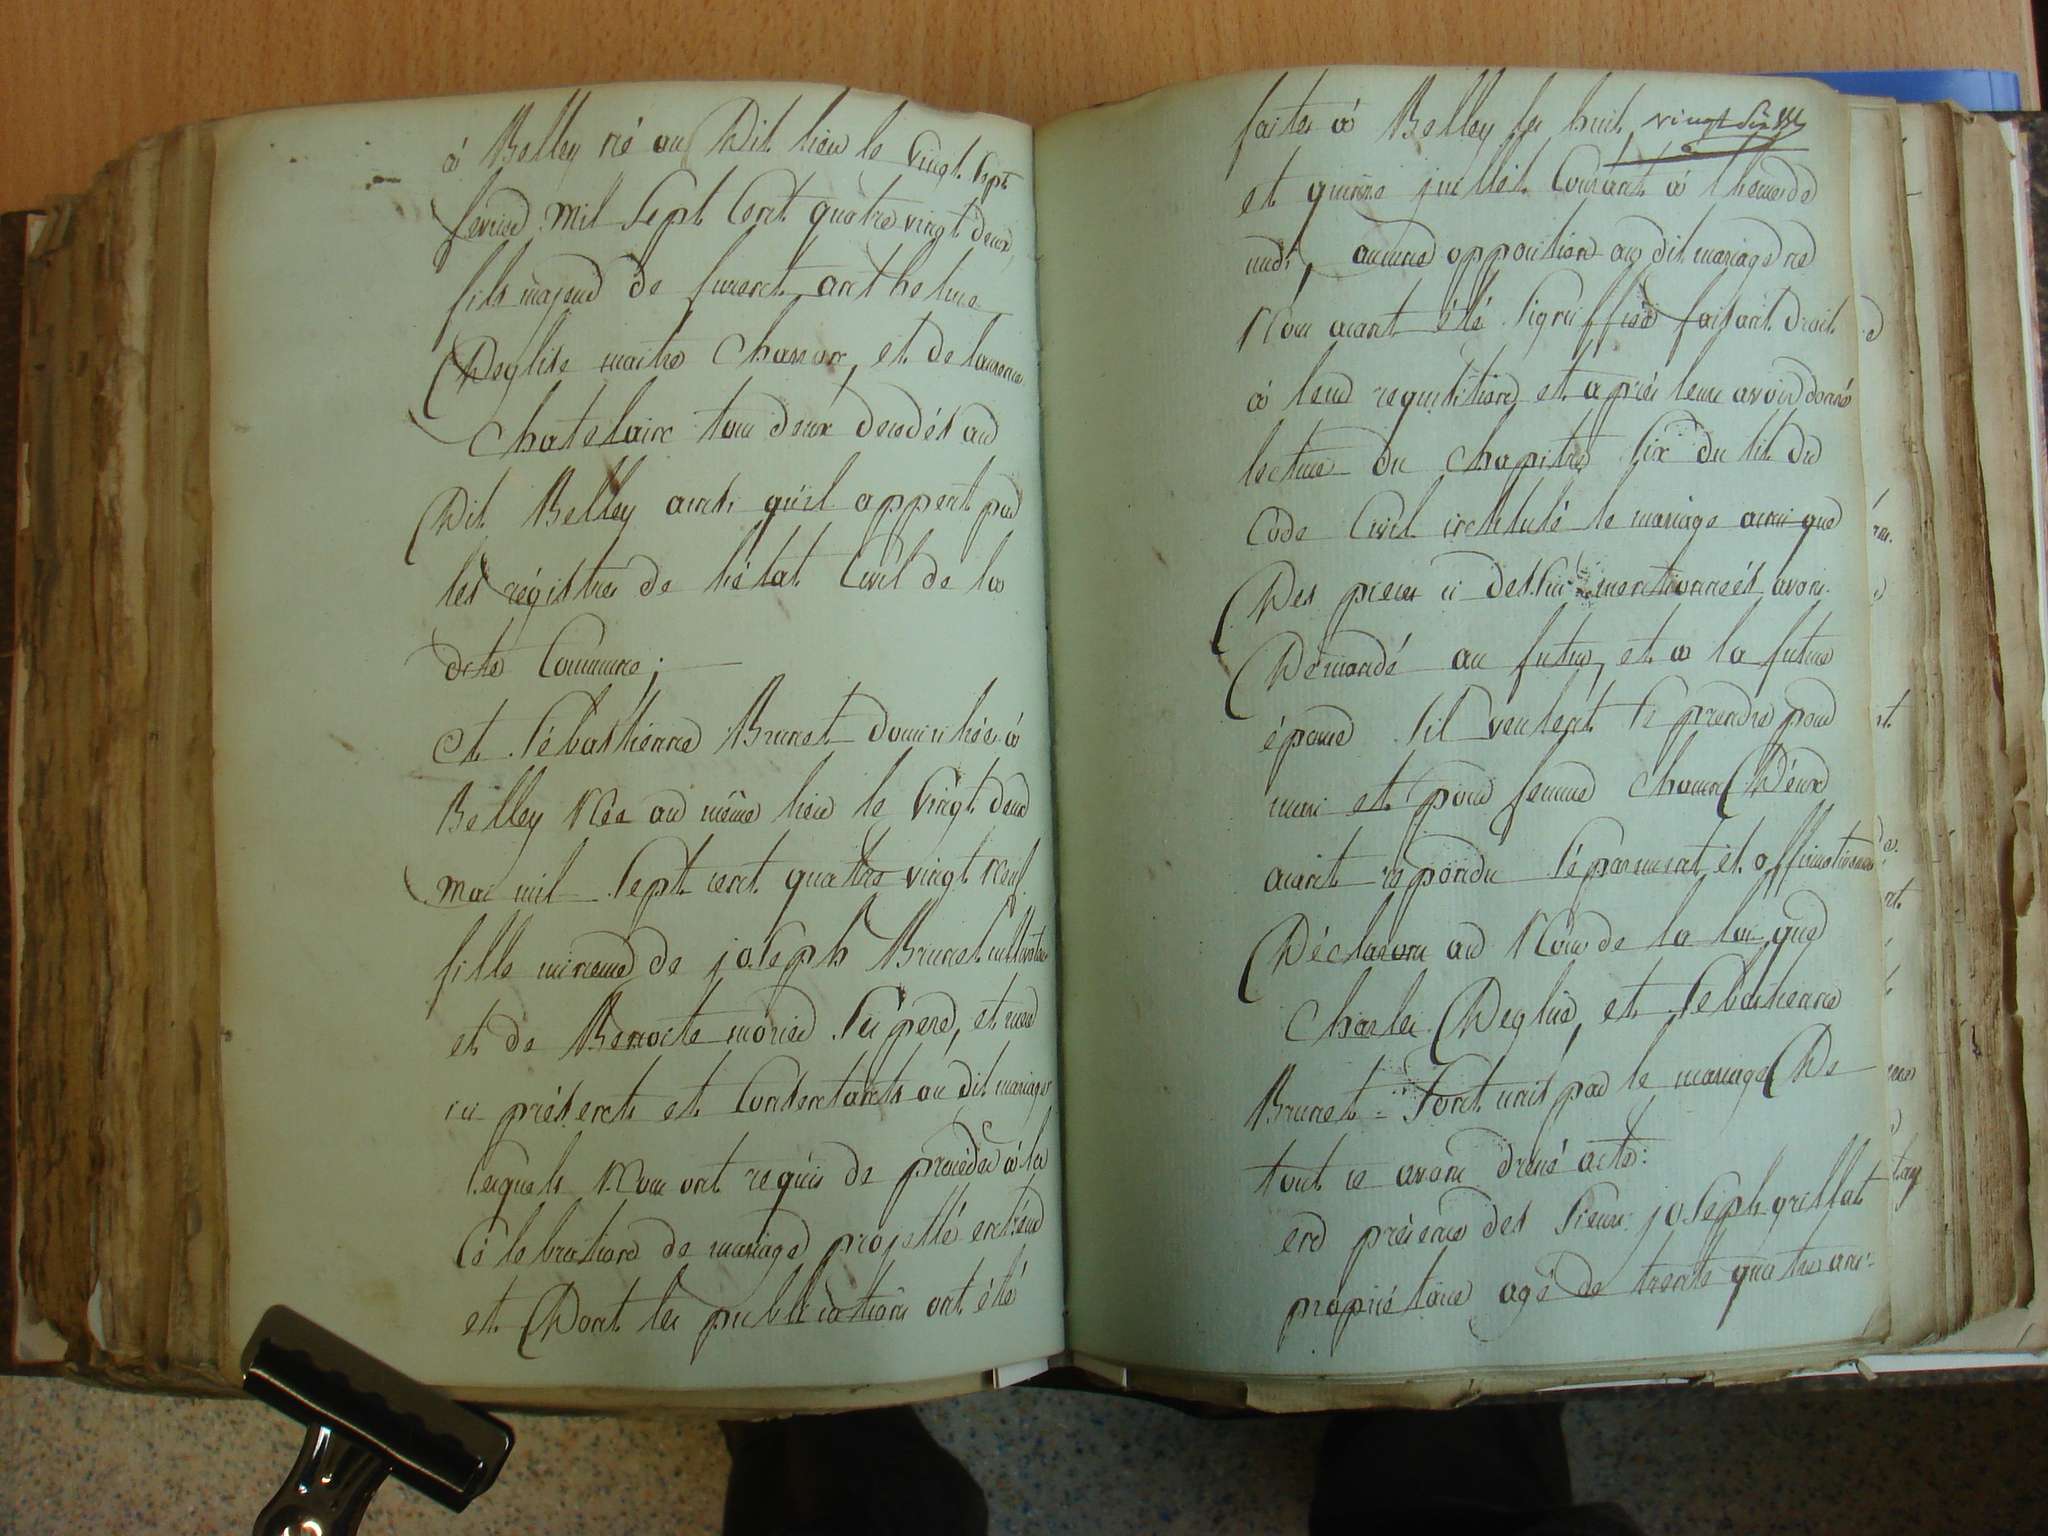 à Belley né au Dit lieu le vingt sept
fevrier mil sept Cent quatre vingt deux,
fils majeur de furent anthelme
Deglise maitre Chanvre et de laurence
Chatelain tous deux decedés au
Dit Belley ainsi qu'il appert par
les régistres de l'état Civil de la
dite Commune;
et Sébastienne Brunet domiciliée à
Belley Née au même lieu le vingt deux
mai mil sept cent quatre vingt neuf
fille mineure de joseph Brunet cultivateur
et de Benoite morier ses pere, et mere
ici présents et Consentants au dit mariage
lesquels Nous ont requis de procéder à la
Célebration de mariage projetté entr'eux
et Dont les publications ont été
vingt six
faites à Belley les huit
et quinze juillet Courant à l'heure de
midi, aucune opposition au dit mariage ne
Nous aiant été Signiffiée faisant droit
à leur requisition et après leur avoir donné
lecture du Chapitre Six du tit du
Code Civil intitulé le mariage ainsi que
Des pieces ci dessus mentionnées avons
Démandé au futur, et à la future
épouse s'il veulent se prendre pour
mari et pour femme chacun D'eux
aiant répondu séparement et affirmativement
Déclarons au Nom de la loi que
Charles Deglise, et Sebastienne
Brunet Sont unis par le mariage De
tout ce avons dressé acte:
en présence des Sieurs joseph grillat
propriétaire agé de trente quatre ans